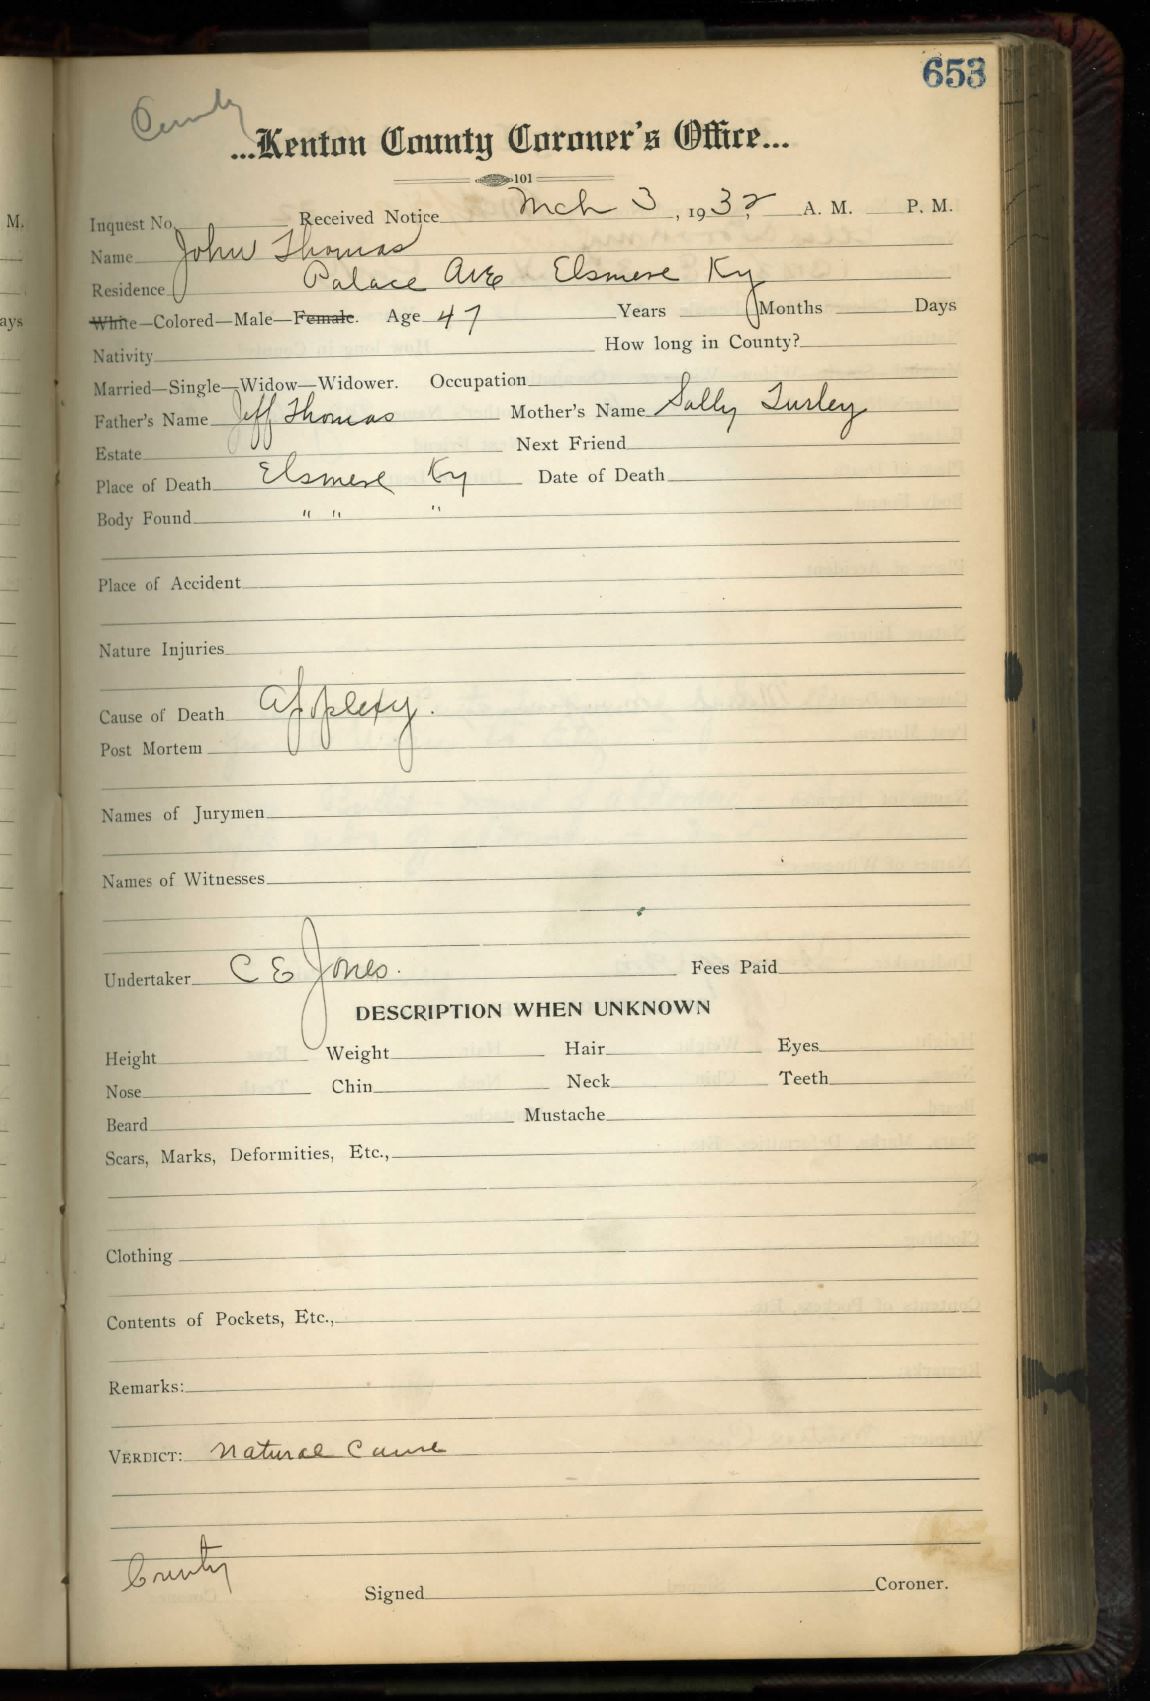 653
County
...Kenton County Coroner's Office...
101
Inquest No. Received Notice Mch 3, 1932 A. M. P. M.
Name John Thomas
Residence Palace Ave Elsmere Ky
White—Colored—Male—Female. Age 47 Years Months Days
Nativity How long in County?
Married—Single—Widow—Widower. Occupation
Father's Name Jeff Thomas Mother's Name Sally Turley
Estate Next Friend
Place of Death Elsmere Ky Date of Death
Body Found " " "
Place of Accident
Nature Injuries
Cause of Death Applexy.
Post Mortem
Names of Jurymen
Names of Witnesses
Undertaker C E Jones. Fees Paid
DESCRIPTION WHEN UNKNOWN
Height Weight Hair Eyes
Nose Chin Neck Teeth
Beard Mustache
Scars, Marks, Deformities, Etc.,
Clothing
Contents of Pockets, Etc.,
Remarks:
VERDICT: Natural Cause
County
Signed Coroner.
M.
ays